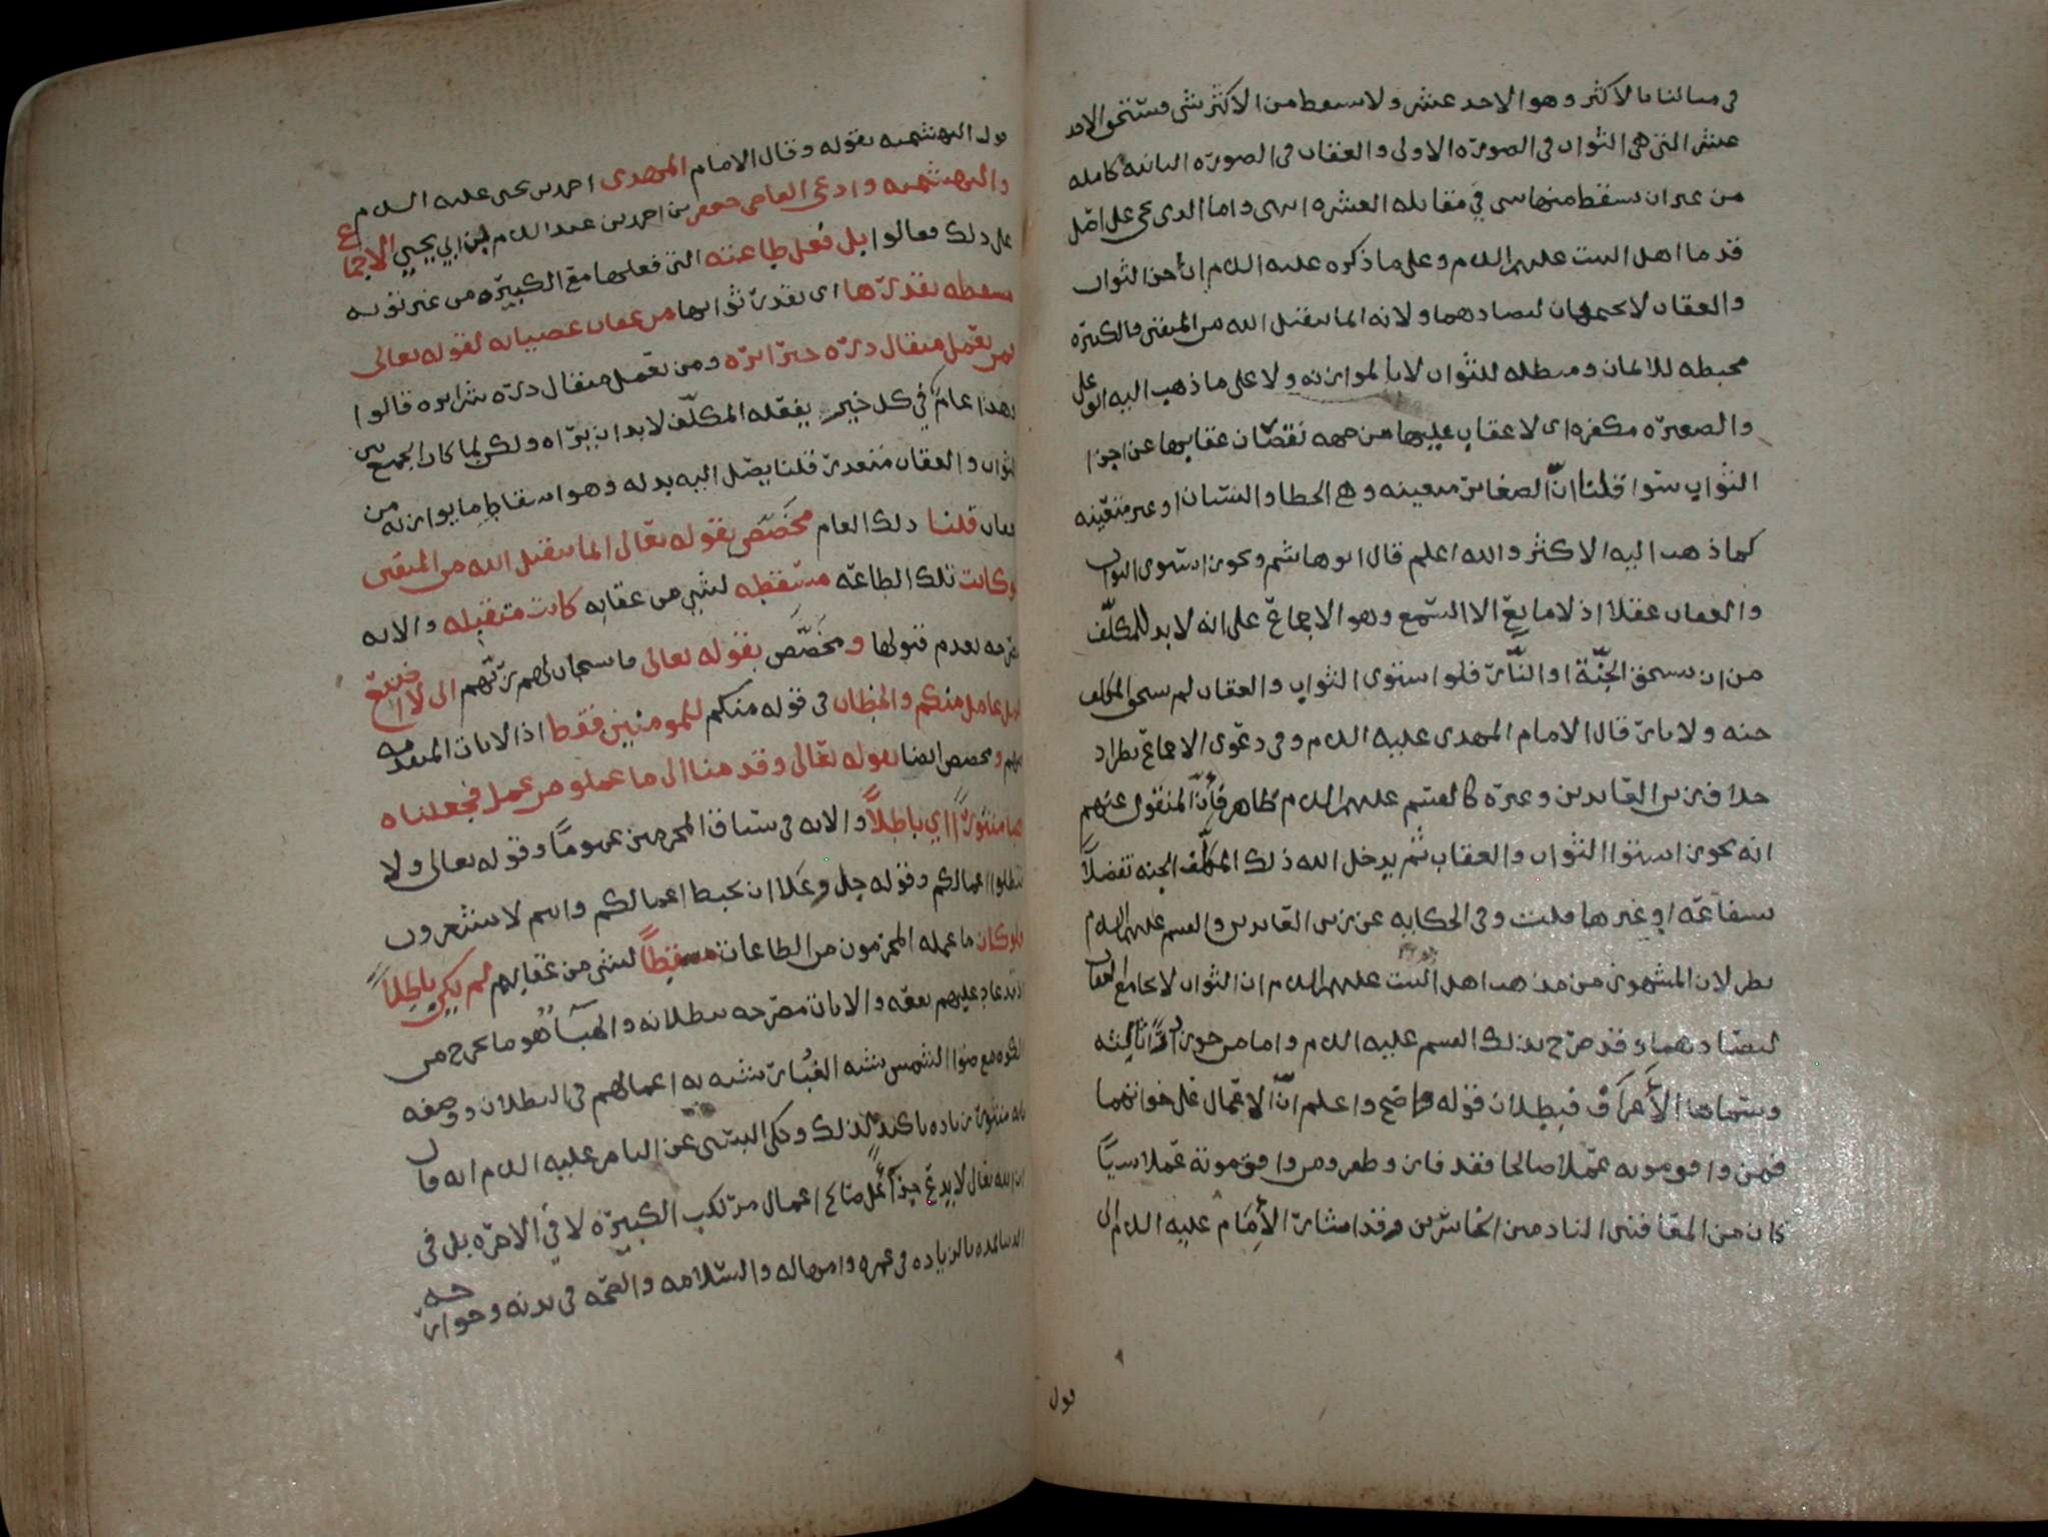 في مسالنا بالاكثر وهو الاحد عشر ولا يسقط من الاكثر شي فيستحق الاحد
عشر التي هي الثواب في الصورة الاولى والعقاب في الصورة الثانية كامله
من غير ان يسقط منها شي في مقابله العشره انتهى واما الذي يجي على اصل
قدما اهل البيت عليهم السلام وعلى ما ذكره عليه السلام ان الثواب
والعقاب لا يجتمعان لتضادهما ولانه انما يتقبل الله من المتقين فالكبيرة
محبطه للايمان ومبطله للثواب لا بالموازنه ولا على ما ذهب اليه ابو علي
والصغيره مكفره اي لا عقاب عليها من جهه نقصان عقابها عن اجزا
الثواب سوا قلنا انّ الصغائر متعينه وهي الخطا والنسيان او غير متعينه
كما ذهب اليه الاكثر والله اعلم قال ابو هاشم ويجوز استوى الثواب
والعقاب عقلا اذ لا مانع الا السمع وهو الاجماع على انه لا بد للمكلّف
من ان يستحق الجنّة او النّار فلو استوى الثواب والعقاب لم يستحق المكلف
جنه ولا نار قال الامام المهدي عليه السلام وفي دعوى الاجماع نظر اذ
خلاف زين العابدين وغيره كالقسم عليهم السلام ظاهر فانّ المنقول عنهم
انه يجوز استوا الثواب والعقاب ثم يدخل الله ذلك المكلّف الجنه تفضلاً
بشفاعه او غيرها قلت وفي الحكايه عن زين العابدين والقسم عليهم السلام
نظر لان المشهور من مذهب اهل البيت عليهم السلام ان الثواب لا يجامع العقاب
لتضادهما وقد صرّح بذلك القسم عليه السلام واما من جوز داراً ثالثه
وسماها الأعراف فبطلان قوله واضح واعلم انّ الاعمال على خواتمها
فمن وافى موته عملا صالحا فقد فاز وظفر ومن وافق موته عملا سيّاً
كان من المقا فتى النادمين الخاسرين وقد اشار الأمام عليه السلام الى
قول
قول البهشميه بقوله وقال الامام المهدي احمد بن يحيى عليه السلام
والبهشميه وادعى القاضي جعفر بن احمد بن عبد السلام بن ابي يحيى الاجماع
على ذلك فقالوا بل فعل طاعته التي فعلها مع الكبيره من غير توبه
مسقطه بقدرها اي بقدر ثوابها من عقاب عصيانه لقوله تعالى
فمن يعمل مثقال ذرّه خيرا يره ومن يعمل مثقال ذرّه شرا يره قالوا
وهذا عام في كل خير يفعله المكلّف لا بد ان يراه ولكن لما كان الجمع بين
الثواب والعقاب متعذر قلنا يصل اليه بدله وهو اسقاط ما يوازنه من
العقاب قلنا ذلك العام مخصّص بقوله تعالى انما يتقبل الله من المتقين
ولو كانت تلك الطاعه مسقطه لشي من عقابه كانت متقبله والايه
مصرحه بعدم قبولها ومخصّص بقوله تعالى فاستجاب لهم ربّهم الى لا اضيع
عمل عامل منكم والخطاب في قوله منكم للمومنين فقط اذ الايات المتقدمه
فيهم ومخصص ايضا بقوله تعالى وقدمنا الى ما عملو من عمل فجعلناه
هبا منثوراً اي باطلاً والايه في سياق المجرمين عموما وقوله تعالى ولا
تبطلوا اعمالكم وقوله جل وعلا ان تحبط اعمالكم وانتم لا تشعرون
فلو كان ما عمله المجرمون من الطاعات مسقطاً لشي من عقابهم لم يكن باطلاً
اذ قد عاد عليهم نفعه والايات مصرحه ببطلانه والهبآ هو ما يخرج من
الكوه مع ضوا الشمس يشبه الغبار شبه به اعمالهم في البطلان ووصفه
بانه منثور زياده تاكيد لذلك وحكى البستي عن الناصر عليه السلام انه قال
ان الله تعالى لا يدع جزآ على صالح اعمال مرتكب الكبيرة لا في الاخره بل في
الدنيا بمده بالزياده في عمره وامهاله والسلامه والصحّه في بدنه وجوارحه